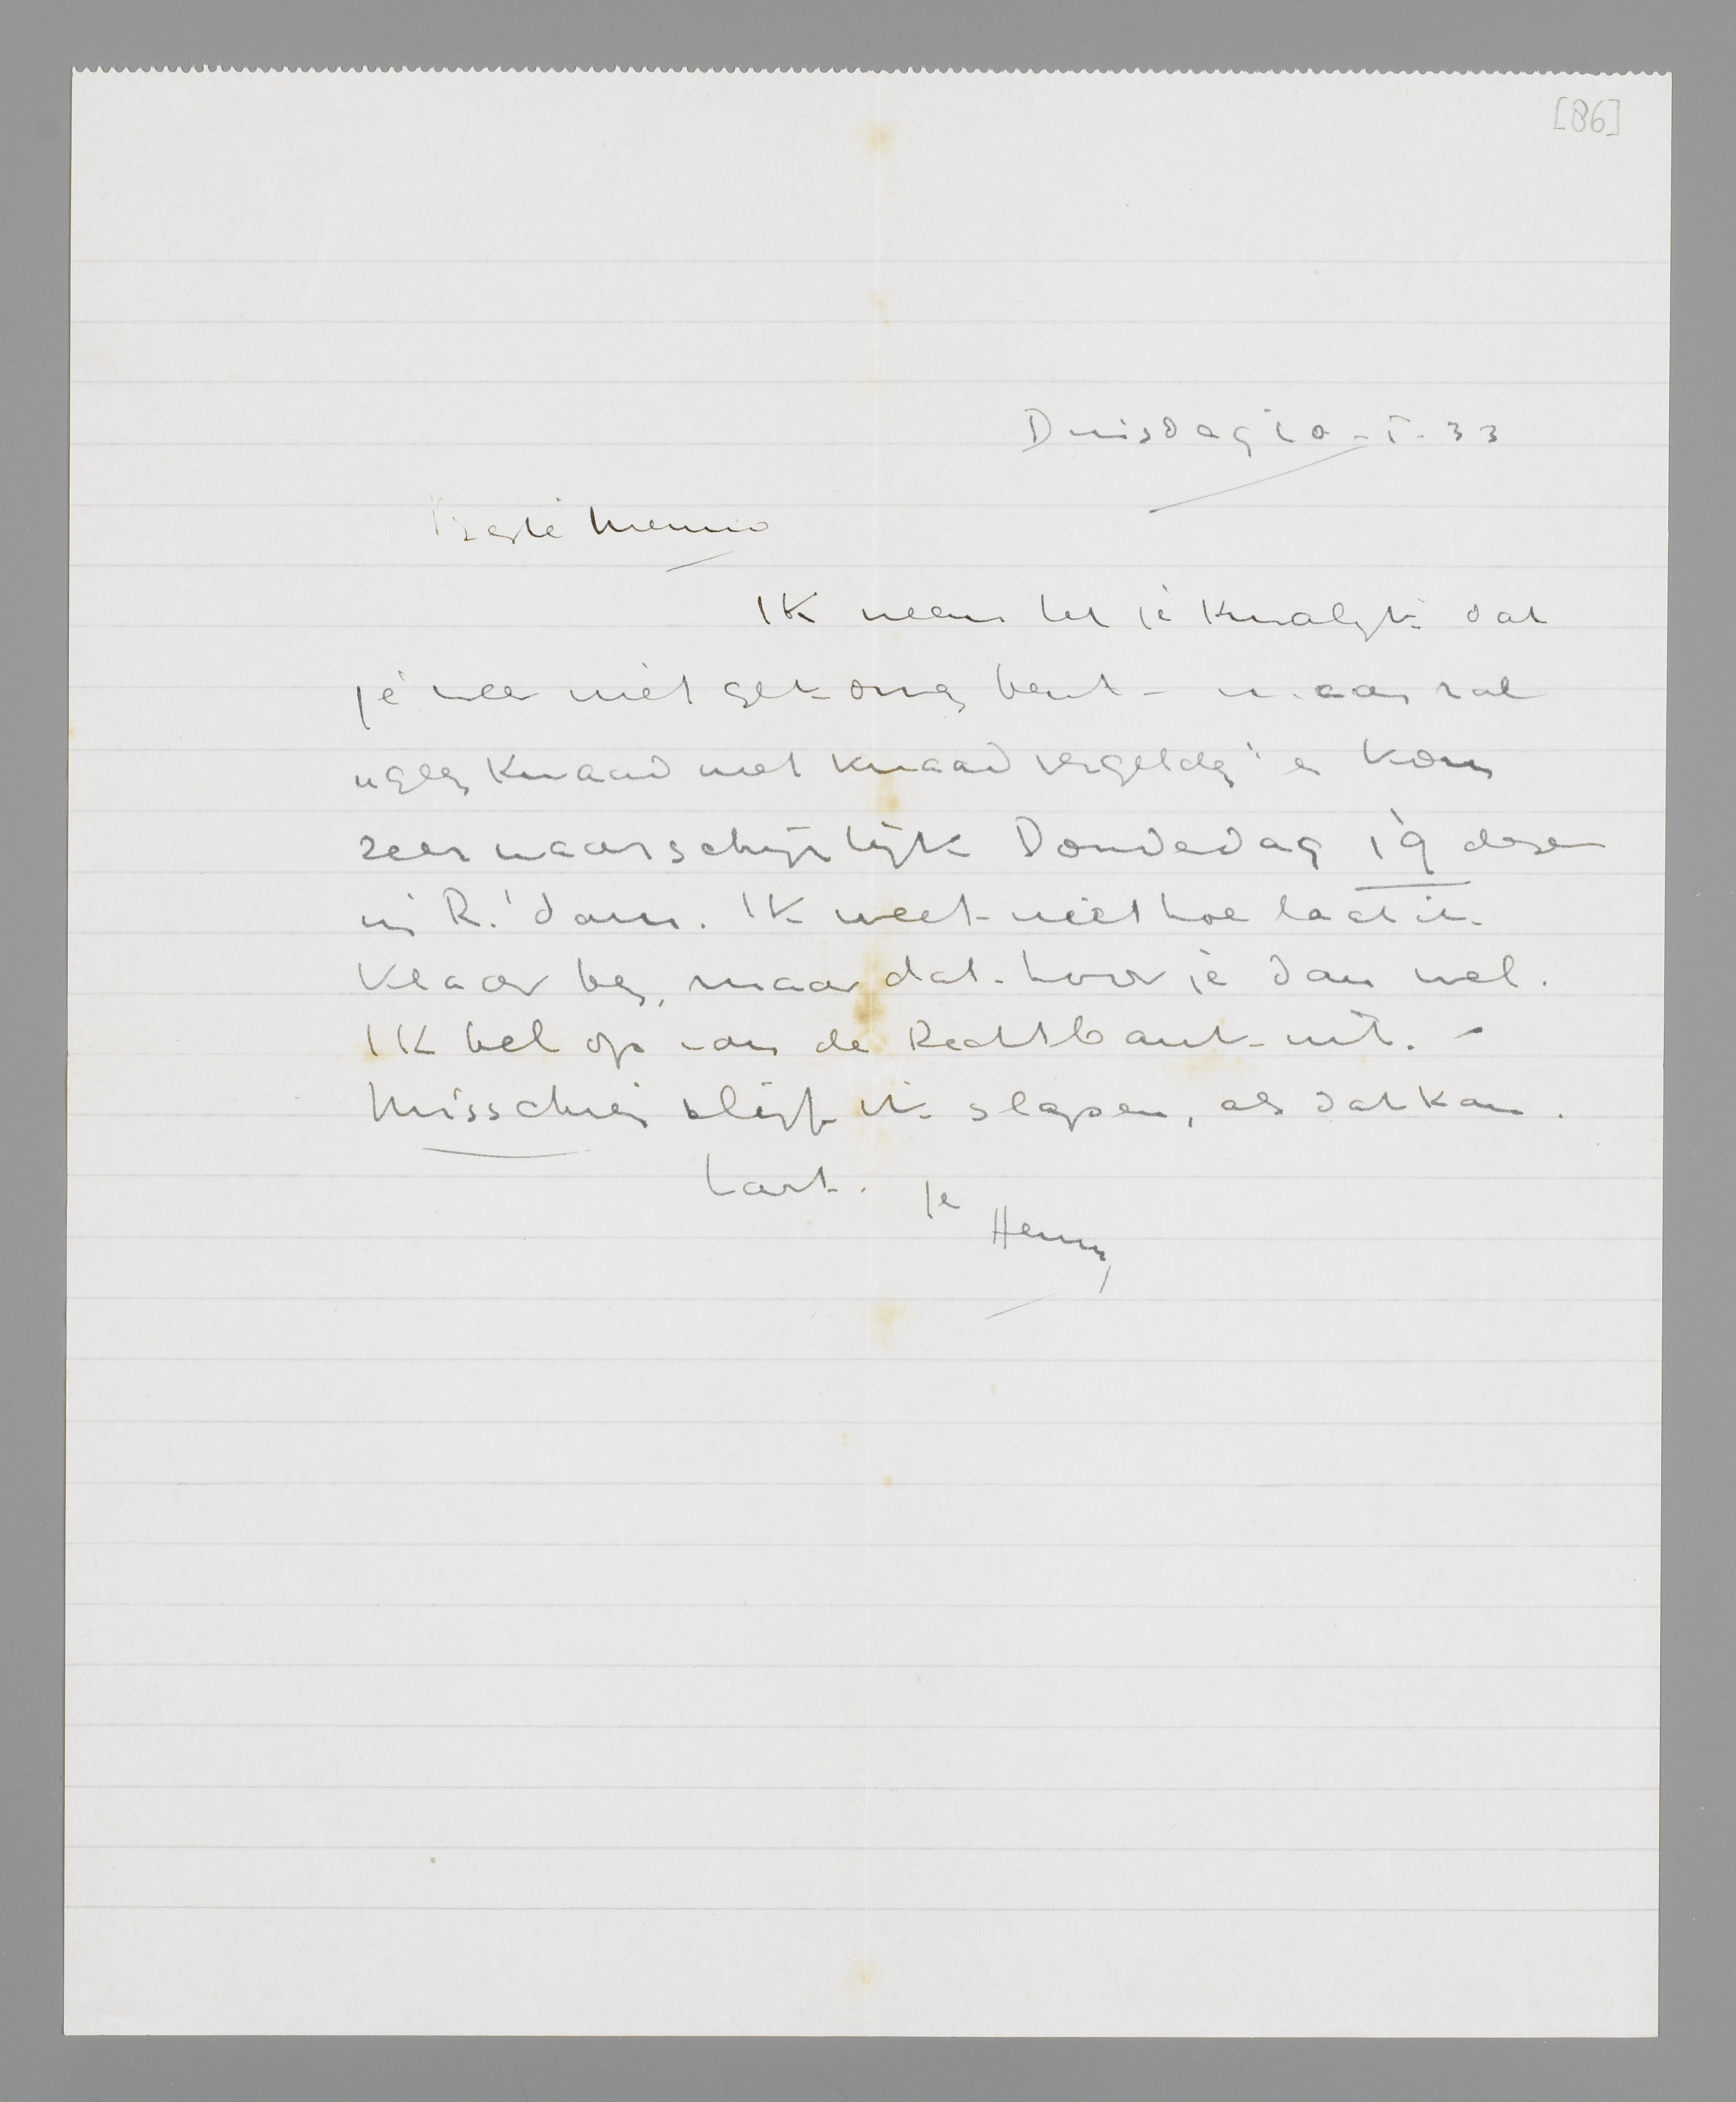 [86]
Dinsdag 10-I-33
Beste Menno
Ik neem het je kwalijk dat
je weer niet gekomen bent - maar zal
kwaad met kwaad vergelden en kom
zeer waarschijnlijk Donderdag 19 dezer
in R.'dam. Ik weet niet hoe laat ik
klaar ben, maar dat hoor je dan wel.
Ik bel op van de Rechtbank uit. -
Misschien blijf ik slapen, als dat kan.
hart. je
Henny